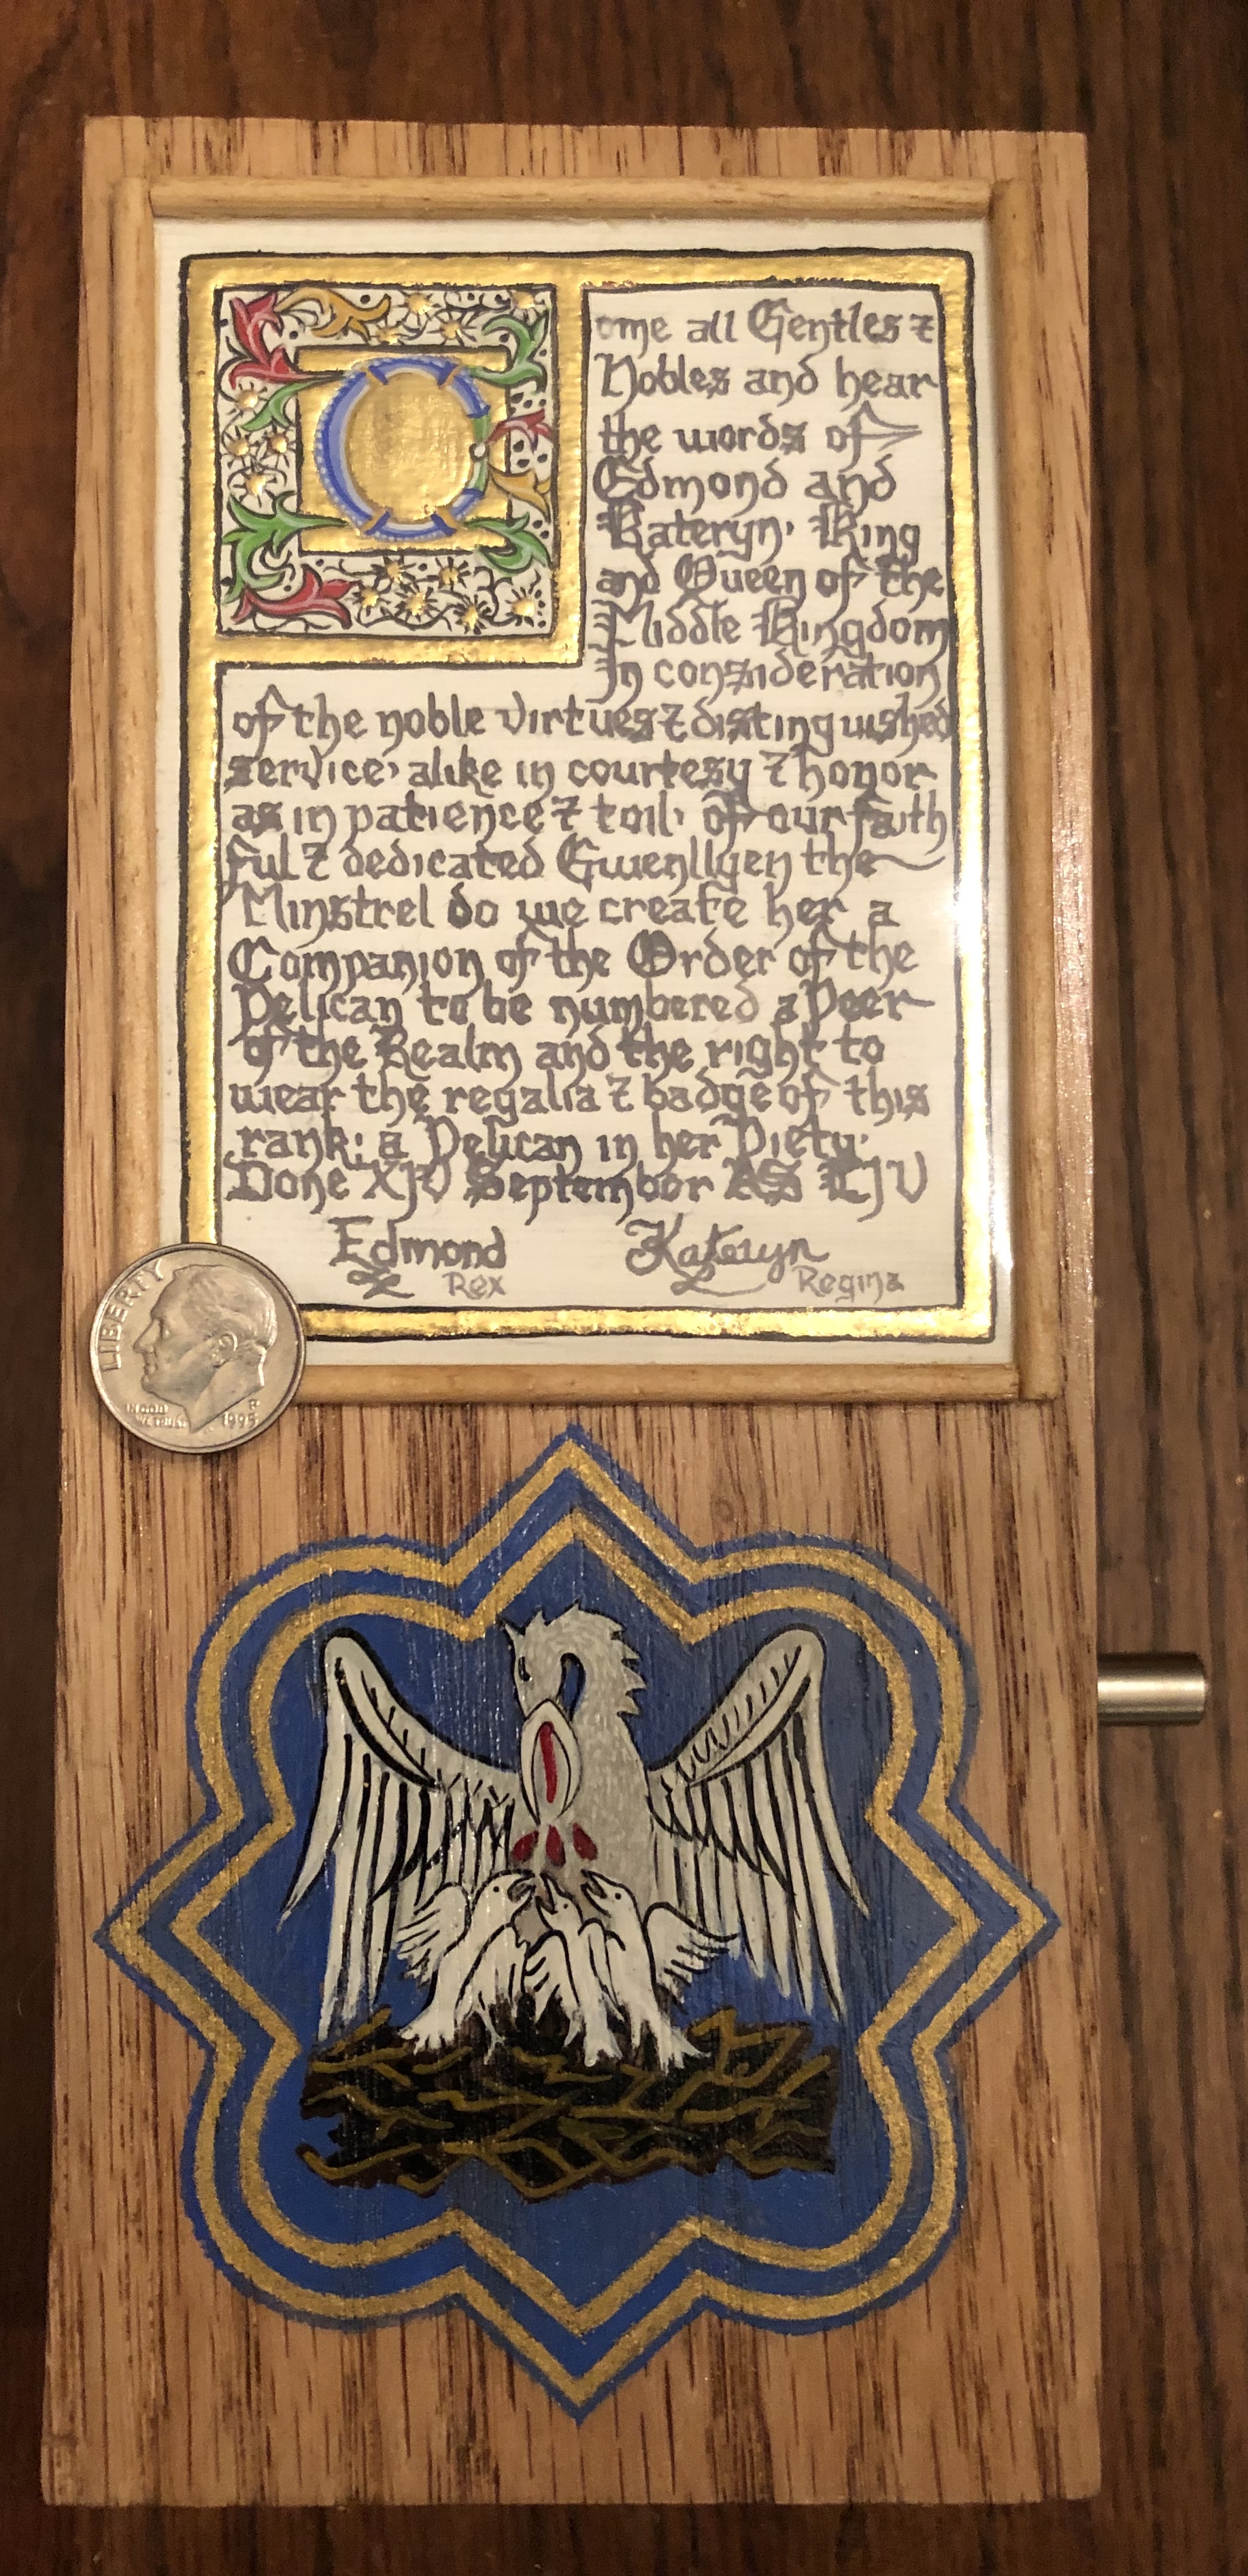 Come all Gentles &
Nobles and hear
the words of
Edmond and
Kateryn, King
and Queen of the
Middle Kingdom
In consideration
of the noble virtues & distinguished
service, alike in courtesy & honor
as in patience & toil, of our faith
ful & dedicated Gwenllyen the
Minstrel do we create her a
Companion of the Order of the
Pelican to be numbered a Peer
of the Realm and the right to
wear the regalia & badge of this
rank: a Pelican in her Piety.
Done XIV September AS LIV
Edmond Kateryn
Rex Regina
LIBERTY
IN GOD
WE TRUST
P
1995